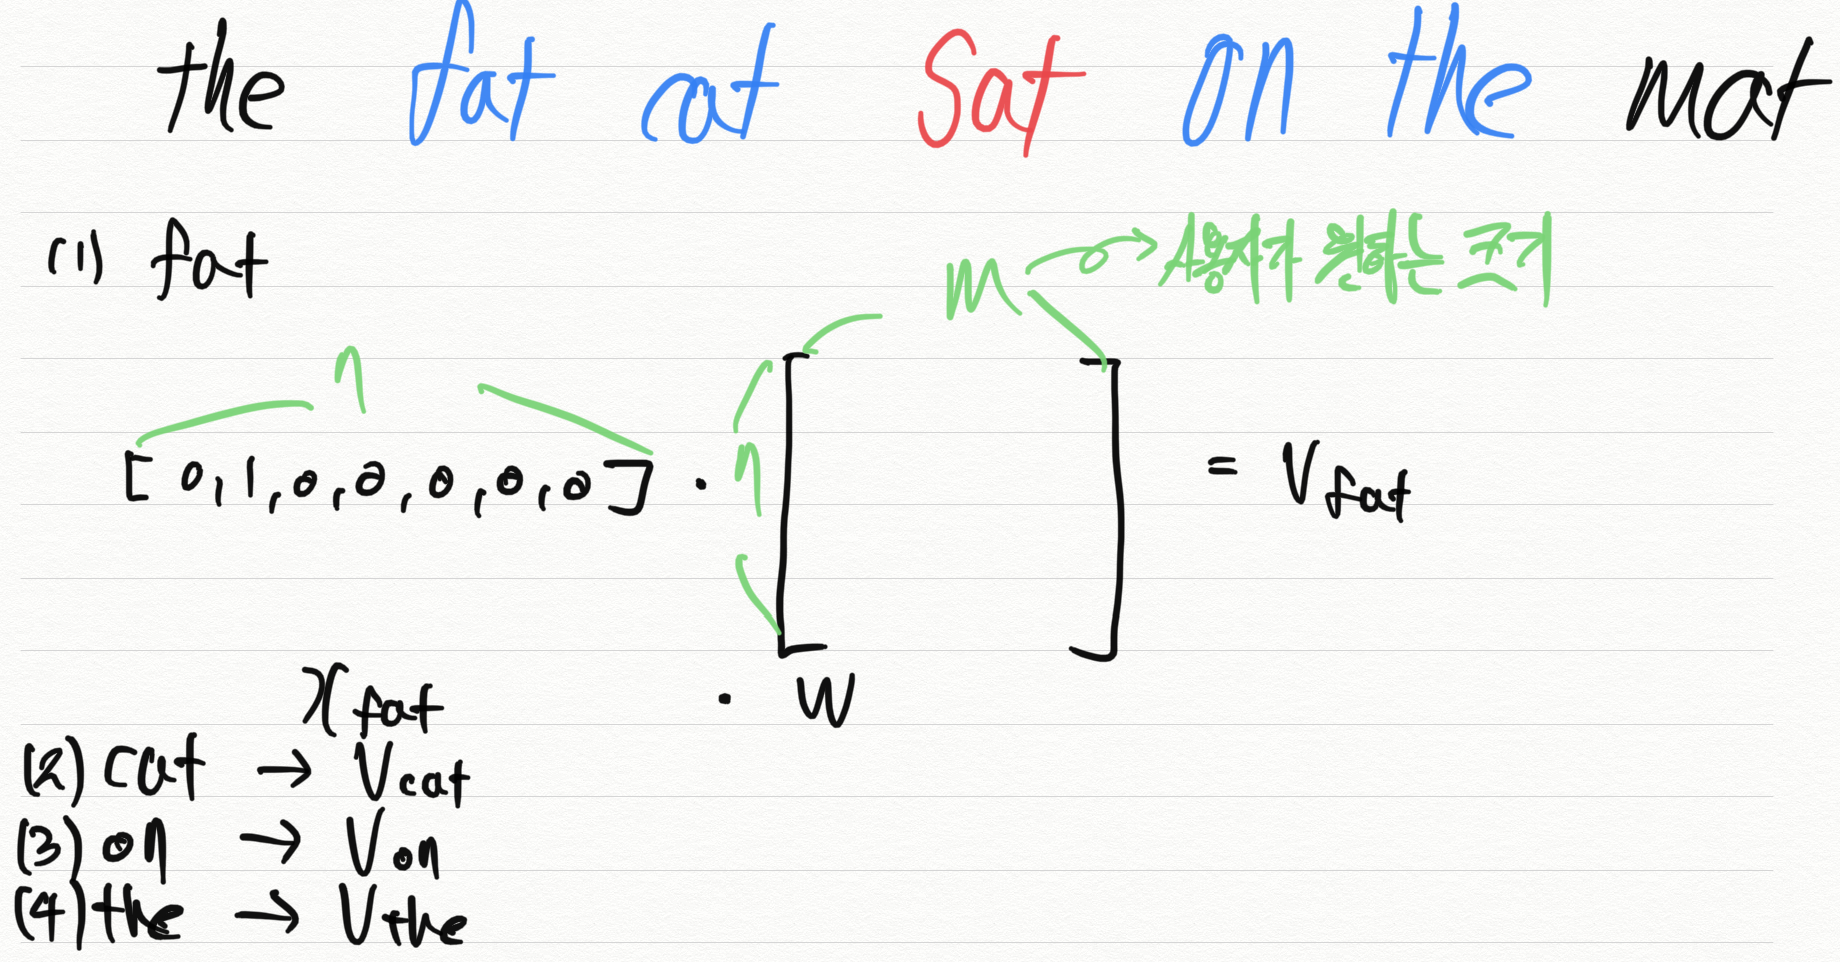 the fat cat sat on the mat
(1) fat
m → 사용자가 원하는 크기
n
[0,1,0,0,0,0,0] · n [ ] = Vfat
xfat · W
(2) cat → Vcat
(3) on → Von
(4) the → Vthe